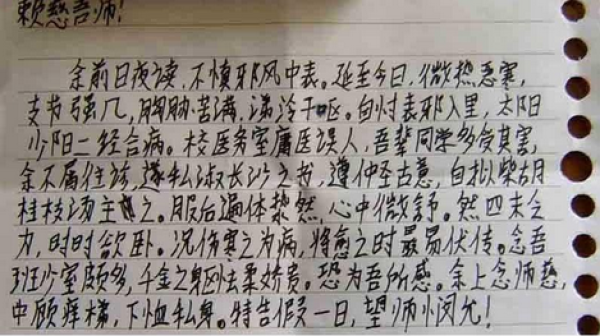 赖慈吾师!
余前日夜读,不慎邪风中表。延至今日,微热恶寒,
支节强几,胸胁苦满,涕泠干呕。自忖表邪入里,太阳
少阳二经合病。校医务室庸医误人,吾辈同学多受其害,
余不屑往诊,遂私淑长沙之书,遵仲圣古意,自拟柴胡
桂枝汤主之。服后遍体漐然,心中微舒。然四末乏
力,时时欲卧。况伤寒之为病,将愈之时最易伏传。念吾
班少室颇多,千金之躯怯柔娇贵。恐为吾所感。余上念师慈,
中顾痒梯,下恤私身。特告假一日,望师悯允!